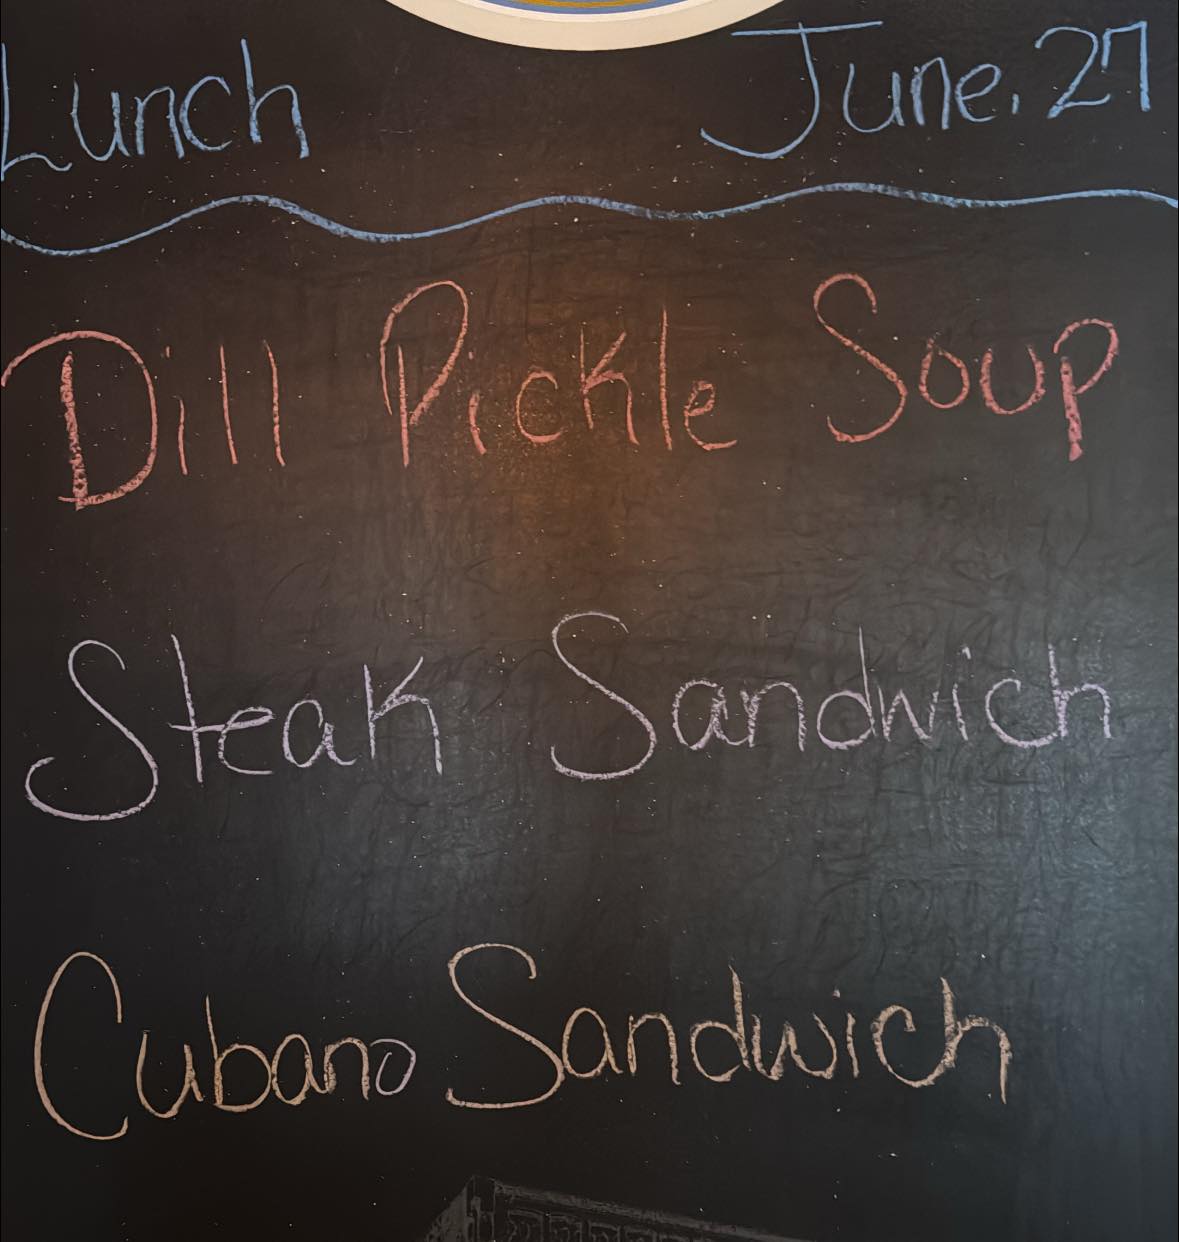 Lunch June. 27
Dill Pickle Soup
Steak Sandwich
Cubano Sandwich